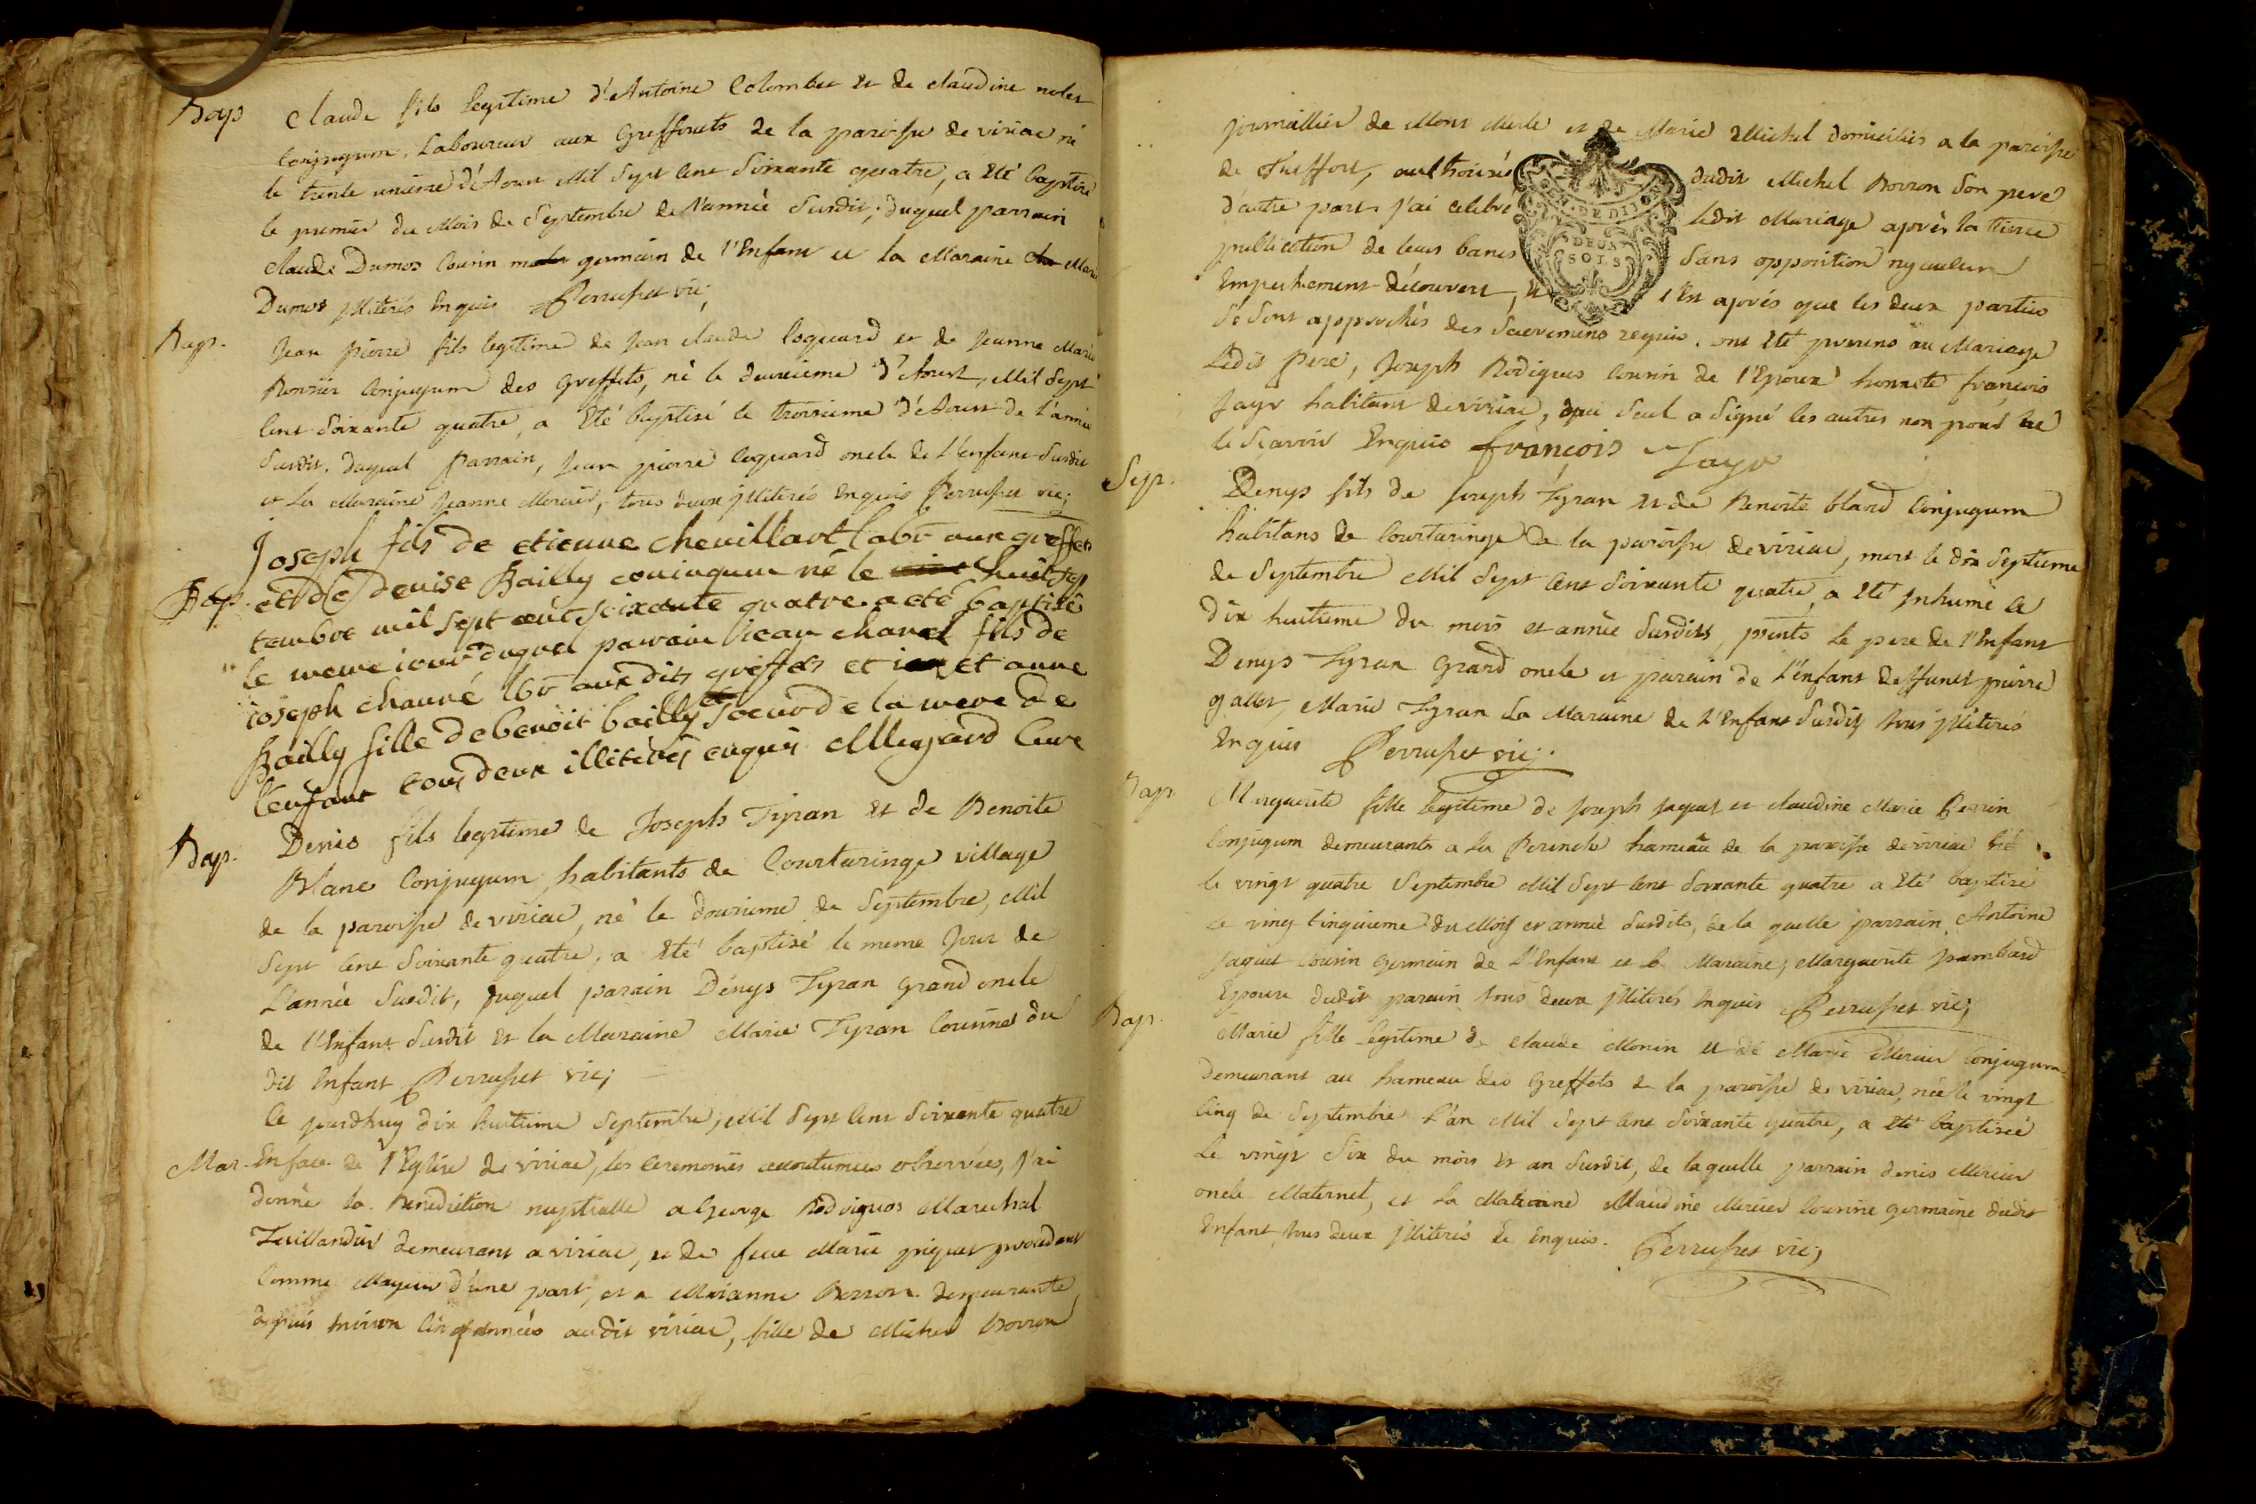 Bap Claude fils legitime d'Antoine Colombet et de claudine nolet
Conjugum, Laboureur aux Greffets de la paroisse de viriac né
le trente unieme d'Aoust Mil Sept Cent Soixante quatre, a eté baptisé
le premier du Mois de Septembre de l'année Susdit; duquel parrain
claude Dumos Cousin germain de l'Enfant et la Maraine Marie
Dumos illiterés Enquis Perruset vic;
Bap. Jean pierre fils legitime de Jean claude Coquard et de Jeanne Marie
Rouvier Conjugum des Greffets, né le deuxieme d'Aoust, Mil Sept
Cent Soixante quatre, a eté baptisé le troisieme d'Aoust de l'année
Susdit. duquel Parrain, Jean pierre Coquard oncle de L'enfant Susdit
et La Maraine Jeanne Mercier, tous deux illiterés Enquis Perruset vic;
Joseph fils de etienne chevillart labr aux greffets
Bap. et de denise Bailly coniugum né le huit sep
tembre mil sept cent soixante quatre a eté baptisé
le meme iour duquel parrain fils de
ioseph chauné lbr aux dits greffets et et anne
Bailly fille de benoit bailly et soeur de la mere de
l'enfant tous deux illiterés enquis Meyard Cure
Bap. Denis fils legitime de Joseph Tyran et de Benoite
Blanc Conjugum, habitants de Courtaringe village
de la paroisse de viriac, né le douzieme de Septembre, Mil
Sept Cent Soixante quatre, a eté baptisé le meme Jour de
L'année Susdit, duquel parain Denys Tyran Grand oncle
de l'Enfant Susdit et la Maraine Marie Tyran Cousine du
dit Enfant Perruset vic;
Ce jourdhuy dix huitieme Septembre, Mil Sept Cent Soixante quatre
Mar. En face de l'Eglise de viriac, les Ceremonies accoutumées observées, j'ai
donné la Benediction nuptialle a George Rodigues Marechal
Taillandier demeurant a viriac, et de feue Marie priquet procedant
Comme Majeur d'une part, et a Marianne Borron demeurante
depuis environ Cinq années audit viriac, fille de Michel Borron
journallier de Mont Merle et de Marie Michel domiciliés a la paroisse
de Treffort, authorisé dudit Michel Borron Son pere
d'autre part. j'ai celebré ledit Mariage aprés la tierce
publication de leurs bancs Sans opposition ny aucun
Empechement découvert, et aprés que les deux parties
Se Sont approchés des Sacremens requis. ont eté presens au Mariage
Ledit Pere, Joseph Rodigues Cousin de l'Epoux honnete françois
Jayr habitant de viriac, qui Seul a Signé les autres non pour ne
le Sçavoir Enquis françois Jayr
Sep. Denys fils de Joseph Tyran et de Benoite bland Conjugum
habitans de Courtaringe de la paroisse de viriac, mort le dix Septieme
de Septembre Mil Sept Cent Soixante quatre, a eté Inhumé le
dix huitieme du mois et année Susdits, presents Le pere de l'Enfant
Denys Tyran Grand oncle et parain de l'enfant deffunct pierre
gallet, Marie Tyran La Maraine de l'Enfant Susdit tous illiterés
Enquis Perruset vic;
Bap. Marguerite fille legitime de Joseph Jaquet et claudine Marie Perrin
Conjugum demeurants a La Perinche hameau de la paroisse de viriac né
le vingt quatre Septembre Mil Sept Cent Soixante quatre a eté baptisé
le ving cinquieme du Mois et année Susdits, de la quelle parrain Antoine
Jaquet Cousin Germain de l'Enfant et la Maraine; Marguerite pambard
Epouse dudit parain tous deux illiterés Enquis Perruset vic;
Bap. Marie fille legitime de claude Monin et de Marie Mercier Conjugum
demeurant au hameau des Greffets de la paroisse de viriac, née le vingt
Cinq de Septembre L'an Mil Sept Cent Soixante quatre, a eté baptiseé
Le vingt Six du mois et an Susdit, de laquelle parrain denis Mercier
oncle Maternel, et La Maraine Claudine Mercier Cousine germaine dudit
Enfant, tous deux illiterés de Enquis. Perruset vic;
DE DIJON
DEUX
SOLS